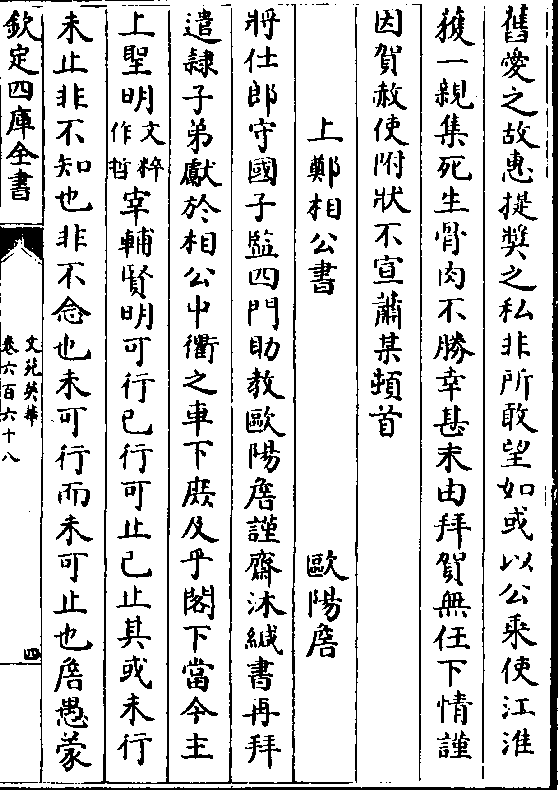 舊愛之故惠提獎之私非所敢望如或以公乘使江淮
獲一親集死生骨肉不勝幸甚末由拜賀無任下情謹
因賀赦使附狀不宣蕭某頓首
上鄭相公書　歐陽詹
將仕郎守國子監四門助教歐陽詹謹齋沐緘書再拜
遣隷子弟獻於相公中衢之車下庻及乎閣下當今主
上聖明文粹作哲宰輔賢明可行已行可止已止其或未行
未止非不知也非不念也未可行而未可止也詹愚蒙
欽定四庫全書
文苑英華
卷六百六十八
四